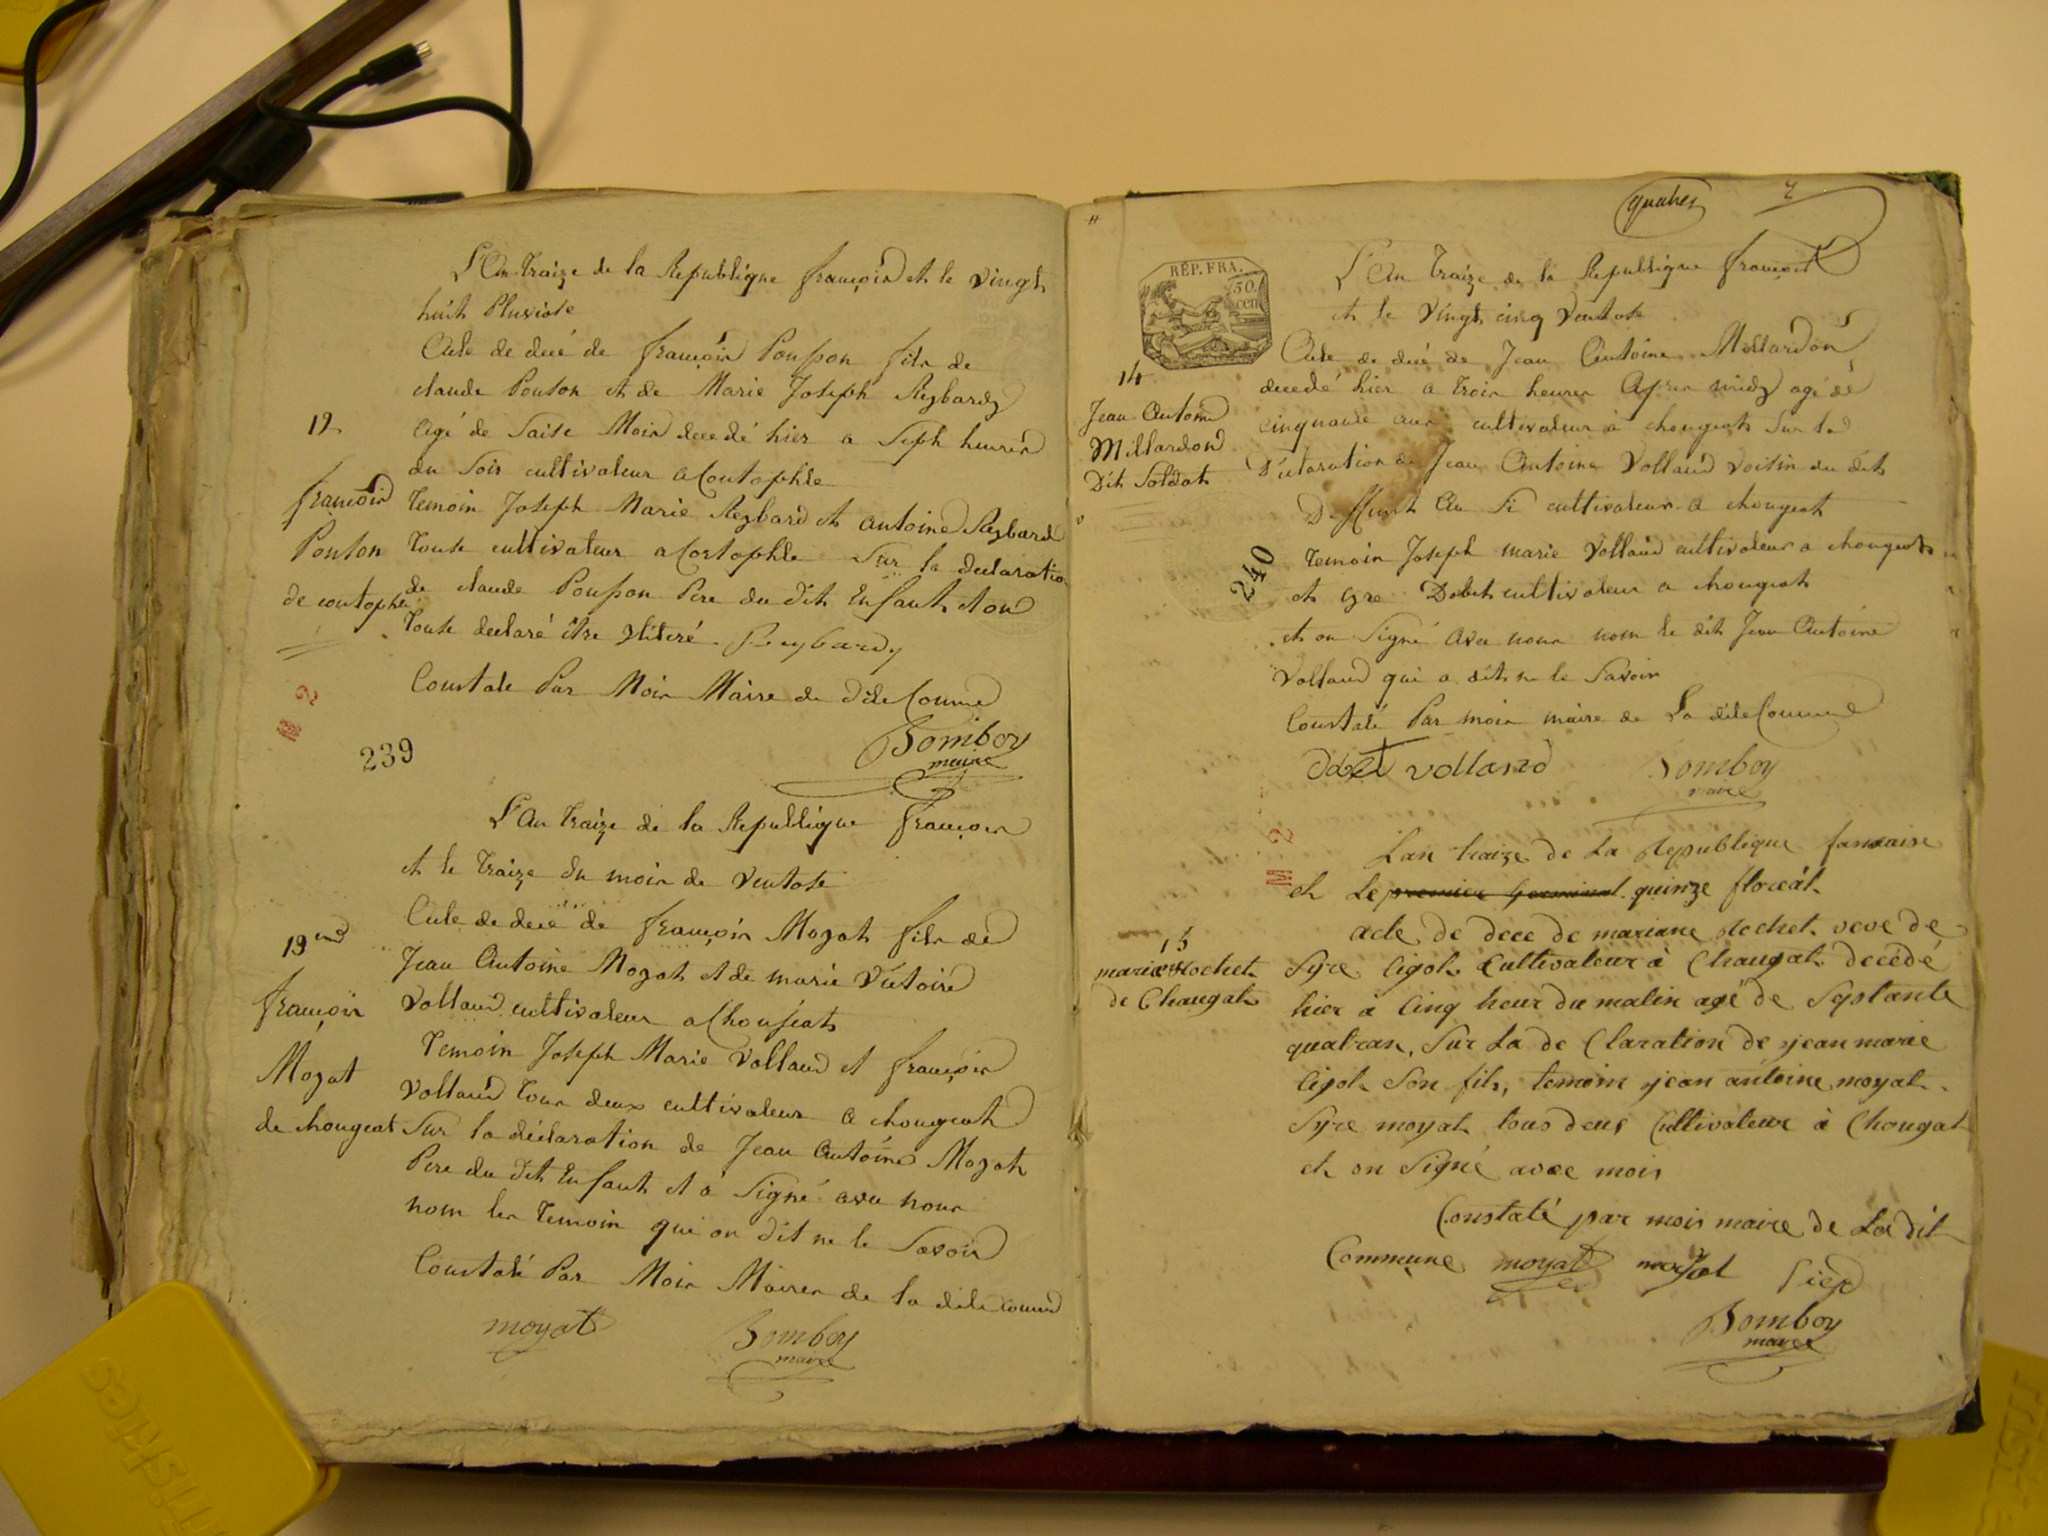 L'An traize de la Republique françois et le vingt
huit Pluviose
Acte de decé de françois Pousson fils de
claude Ponson et de Marie Joseph Reybard
12
Agé de Saise Mois decedé hier a Seph heures
du Soir cultivateur a Coutophle
françois
Ponson
de coutophle
Temoin Joseph Marie Reybard et antoine Reybard
toute cultivateur a Costophle Sur la declaration
de claude Pousson Pere du dit Enfant et on
toute declaré être Reybard
Constate Par Moin Maire de dite Comune
Bomboy
maire
239
L'An traize de la Republique françois
et le traize du mois de Ventose
19
françois
Moyat
de chougeat
Acte de decé de françois Moyat fils de
Jean Antoine Moyat et de marie Victoire
Volland cultivateur a
Temoin Joseph Marie Volland et françois
Volland tous deux cultivateur a chougeat
Sur la déclaration de Jean Antoine Moyat
Pere du dit Enfant et a Signé avec nous
nom les Temoin qui on dit ne le Savoir
Constaté Par Moin Maire de la dite comune
moyat Bomboy
maire
quatres
REP. FRA.
50
cen
L'An traize de la Republique françois
et le Vingt cinq Ventose
14
Jean Antoine
Millardond
Dit Soldat
Acte de decé de Jean Antoine Millardon
decedé hier a trois heures Apres midy agé de
cinquante ans cultivateur a chougeat Sur la
Declaration de Jean Antoine Volland Voisin du dit
Deffunt cultivateur a chougeat
240
Temoin Joseph marie Volland cultivateur a chougeat
et cyre Dobet cultivateur a chougeat
et on Signé avec nous nom le dit Jean Antoine
Volland qui a dit ne le Savoir
Constaté Par moin maire de La dite Comune
Dobet volland Bomboy
maire
Lan traize de La Republique fansaise
et Le premier Germinal quinze floreál
15
marie Rochet
de Chaugat
acte de dece de mariane Rochet veve de
Syre Cigot Cultivateur à Chaugat decedé
hier à Cinq heur du matin agé de Systante
quatran, Sur La de Claration de jean marie
Cigot Son fils, temoins jean antoine moyat
Syre moyat tous deus Cultivateur à Chougat
et on Signé avec mois
Constaté par mois maire de La dit
Commune moyat moyat
Bomboy
maire